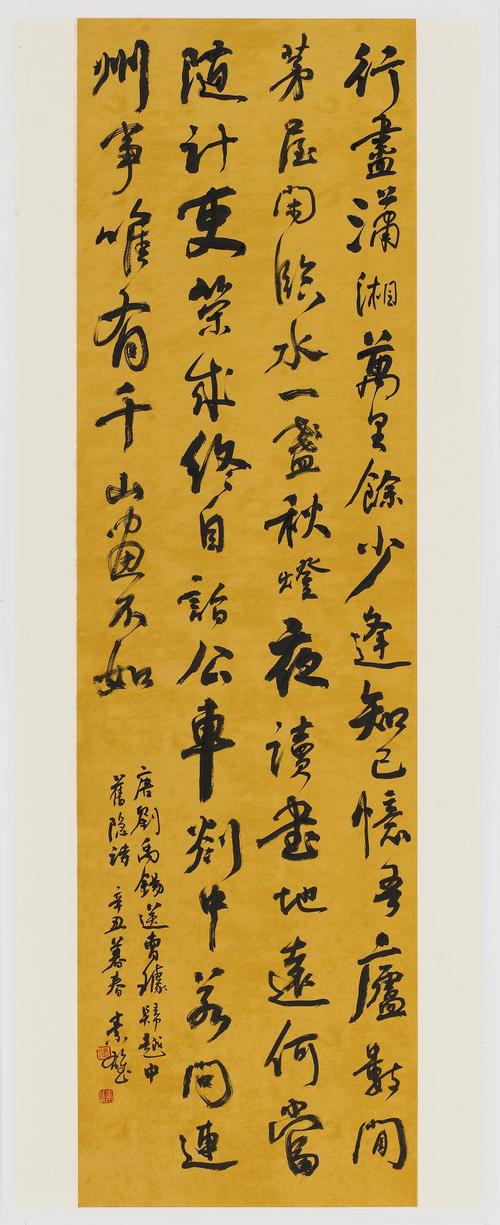 行盡瀟湘萬里餘少逢知己憶吾廬數間
茅屋閑臨水一盞秋燈夜讀書地遠何當
隨計吏策成終自詣公車剡中若問連
州事唯有千山畫不如
唐劉禹錫送曹璩歸越中
舊隱詩 辛丑暮春 素雄